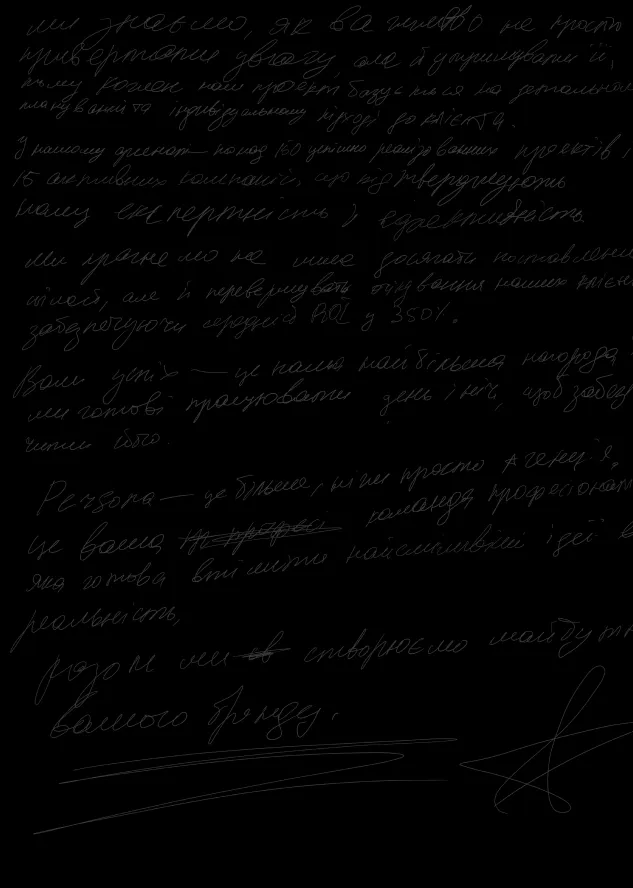 ми знаємо, як важливо не просто
привертати увагу, але й утримувати її,
тому кожен наш проект базується на детальном
плануванні та індивідуальному підході до клієнта.
У нашому арсеналі понад 150 успішно реалізованих проектів і
15 активних компаній, що підтверджують
нашу експертність і ефективність.
Ми прагнемо не лише досягати поставлени
цілей, але й перевершувать очікування наших клієн
забезпечуючи середній ROI у 350%.
Ваш успіх — це наша найбільша нагорода
ми готові працювати день і ніч, щоб забез
чити його.
Persona — це більше, ніж просто агенція,
це ваша команда професіонал
яка готова втілити найсміливіші ідеї в
реальність,
разом ми створюємо майбутн
вашого бренду.